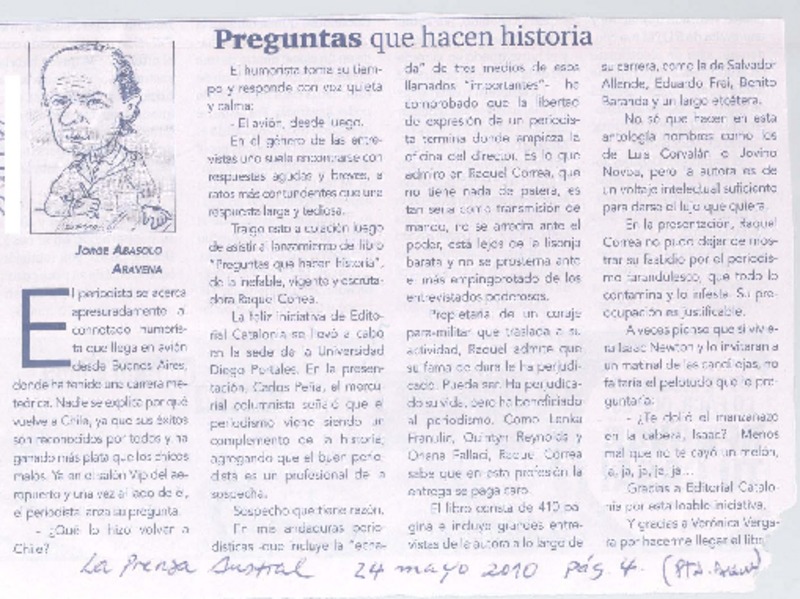 Preguntas que hacen historia
JORGE ABASOLO
ARAVENA
El periodista se acerca
apresuradamente al
connotado humoris-
ta que llega en avión
desde Buenos Aires,
donde ha tenido una carrera me-
teórica. Nadie se explica por qué
vuelve a Chile, ya que sus éxitos
son reconocidos por todos y ha
ganado más plata que los chicos
malos. Ya en el salón Vip del ae-
ropuerto y una vez al lado de él,
el periodista lanza su pregunta.
- ¿Qué lo hizo volver a
Chile?
El humorista toma su tiem-
po y responde con voz quieta
y calma:
- El avión, desde luego.
En el género de las entre-
vistas uno suele encontrarse con
respuestas agudas y breves, a
ratos más contundentes que una
respuesta larga y tediosa.
Traigo esto a colación luego
de asistir al lanzamiento del libro
"Preguntas que hacen historia",
de la inefable, vigente y escruta-
dora Raquel Correa.
La feliz iniciativa de Edito-
rial Catalonia se llevó a cabo
en la sede de la Universidad
Diego Portales. En la presen-
tación, Carlos Peña, el mercu-
rial columnista señaló que el
periodismo viene siendo un
complemento de la historia,
agregando que el buen perio-
dista es un profesional de la
sospecha.
Sospecho que tiene razón.
En mis andaduras perio-
dísticas -que incluye la "echa-
da" de tres medios de esos
llamados "importantes"- he
comprobado que la libertad
de expresión de un periodis-
ta termina donde empieza la
oficina del director. Es lo que
admiro en Raquel Correa, que
no tiene nada de patera, es
tan seria como transmisión de
mando, no se amedra ante el
poder, está lejos de la lisonja
barata y no se prosterna ante
el más empingorotado de los
entrevistados poderosos.
Propietaria de un coraje
para-militar que traslada a su
actividad, Raquel admite que
su fama de dura le ha perjudi-
cado. Puede ser. Ha perjudica-
do su vida, pero ha beneficiado
al periodismo. Como Lenka
Franulic, Quintyn Reynolds y
Oriana Fallaci, Raquel Correa
sabe que en esta profesión la
entrega se paga caro.
El libro consta de 410 pá-
gina e incluye grandes entre-
vistas de la autora a lo largo de
su carrera, como la de Salvador
Allende, Eduardo Frei, Benito
Baranda y un largo etcétera.
No sé que hacen en esta
antología nombres como los
de Luis Corvalán o Jovino
Novoa, pero la autora es de
un voltaje intelectual suficiente
para darse el lujo que quiera.
En la presentación, Raquel
Correa no pudo dejar de mos-
trar su fastidio por el periodis-
mo farandulesco, que todo lo
contamina y lo infesta. Su pre-
ocupación es justificable.
A veces pienso que si vivie-
ra Isaac Newton y lo invitaran a
un matinal de las candilejas, no
faltaría el pelotudo que le pre-
guntaría:
- ¿Te dolió el manzanazo
en la cabeza, Isaac? Menos
mal que no te cayó un melón,
ja, ja, ja, ja, ja...
Gracias a Editorial Catalo-
nia por esta loable iniciativa.
Y gracias a Verónica Verga-
ra por hacerme llegar el libro
La Prensa Austral 24 mayo 2010 pág. 4.